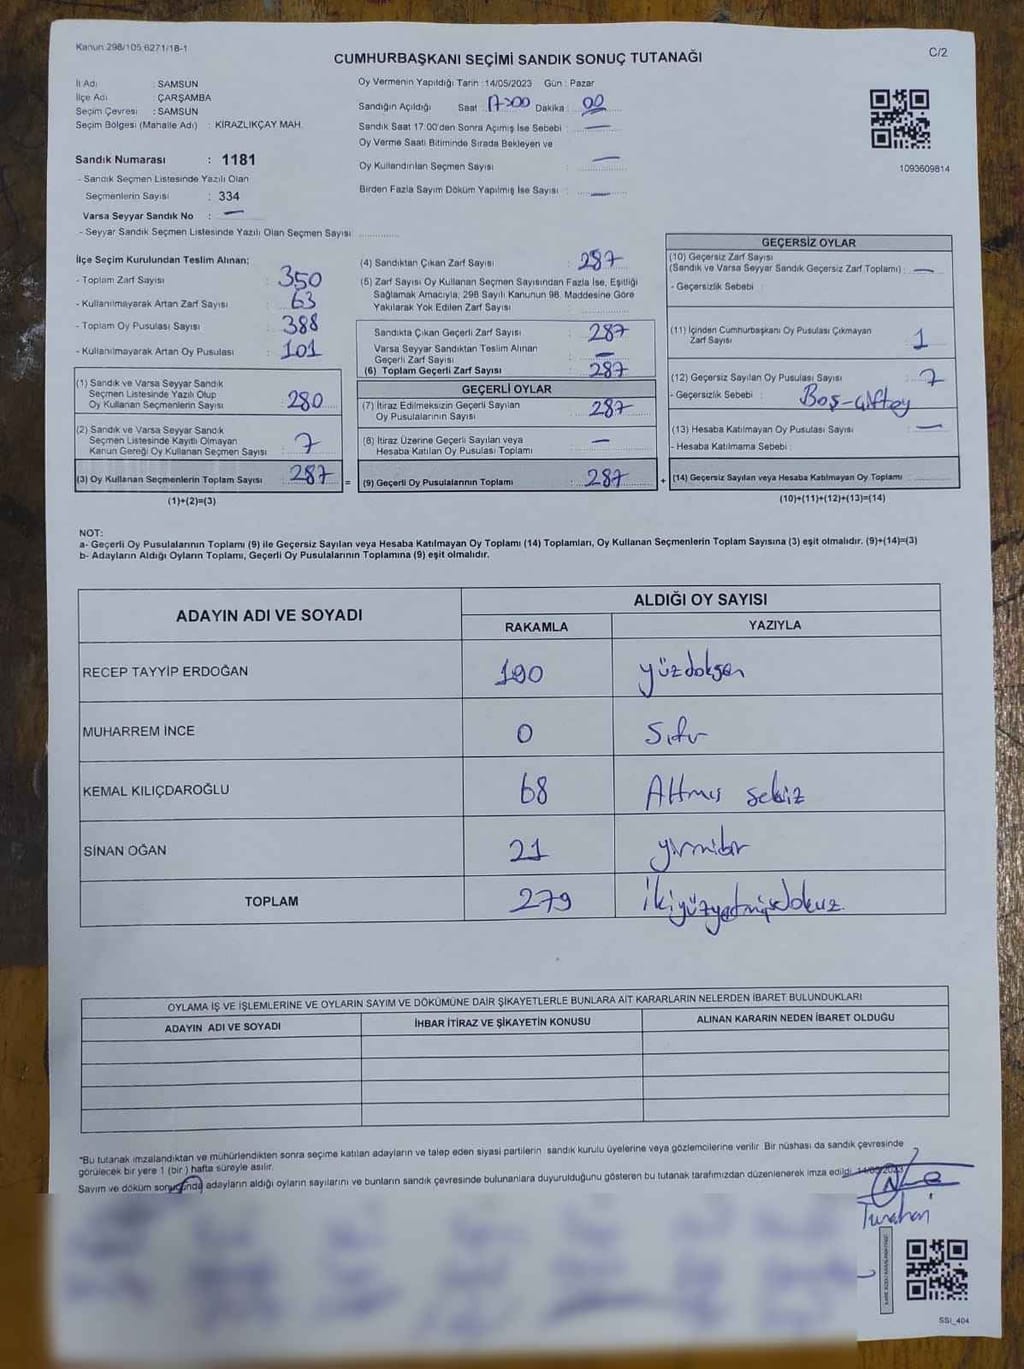 Kanun 298/105,6271/18-1
C/2
CUMHURBAŞKANI SEÇİMİ SANDIK SONUÇ TUTANAĞI
İl Adı : SAMSUN
İlçe Adı : ÇARŞAMBA
Seçim Çevresi : SAMSUN
Seçim Bölgesi (Mahalle Adı) : KİRAZLIKÇAY MAH.
Sandık Numarası : 1181
- Sandık Seçmen Listesinde Yazılı Olan
Seçmenlerin Sayısı : 334
Varsa Seyyar Sandık No : —
- Seyyar Sandık Seçmen Listesinde Yazılı Olan Seçmen Sayısı
Oy Vermenin Yapıldığı Tarih :14/05/2023 Gün : Pazar
Sandığın Açıldığı Saat : 17:00 Dakika : 00
Sandık Saat 17:00'den Sonra Açımış İse Sebebi : —
Oy Verme Saati Bitiminde Sırada Bekleyen ve
Oy Kullandırılan Seçmen Sayısı : —
Birden Fazla Sayım Döküm Yapılmış İse Sayısı : —
1093609814
İlçe Seçim Kurulundan Teslim Alınan;
- Toplam Zarf Sayısı : 350
- Kullanılmayarak Artan Zarf Sayısı : 63
- Toplam Oy Pusulası Sayısı : 388
- Kullanılmayarak Artan Oy Pusulası : 101
(1) Sandık ve Varsa Seyyar Sandık
Seçmen Listesinde Yazılı Olup
Oy Kullanan Seçmenlerin Sayısı : 280
(2) Sandık ve Varsa Seyyar Sandık
Seçmen Listesinde Kayıtlı Olmayan
Kanun Gereği Oy Kullanan Seçmen Sayısı : 7
(3) Oy Kullanan Seçmenlerin Toplam Sayısı : 287 =
(1)+(2)=(3)
(4) Sandıktan Çıkan Zarf Sayısı : 287
(5) Zarf Sayısı Oy Kullanan Seçmen Sayısından Fazla İse, Eşitliği
Sağlamak Amacıyla; 298 Sayılı Kanunun 98. Maddesine Göre
Yakılarak Yok Edilen Zarf Sayısı :
Sandıkta Çıkan Geçerli Zarf Sayısı : 287
Varsa Seyyar Sandıktan Teslim Alınan
Geçerli Zarf Sayısı : —
(6) Toplam Geçerli Zarf Sayısı : 287
GEÇERLİ OYLAR
(7) İtiraz Edilmeksizin Geçerli Sayılan
Oy Pusulalarının Sayısı : 287
(8) İtiraz Üzerine Geçerli Sayılan veya
Hesaba Katılan Oy Pusulası Toplamı : —
(9) Geçerli Oy Pusulalarının Toplamı : 287 +
GEÇERSİZ OYLAR
(10) Geçersiz Zarf Sayısı
(Sandık ve Varsa Seyyar Sandık Geçersiz Zarf Toplamı) : —
- Geçersizlik Sebebi :
(11) İçinden Cumhurbaşkanı Oy Pusulası Çıkmayan
Zarf Sayısı : 1
(12) Geçersiz Sayılan Oy Pusulası Sayısı : 7
- Geçersizlik Sebebi : Boş-çiftoy
(13) Hesaba Katılmayan Oy Pusulası Sayısı : —
- Hesaba Katılmama Sebebi :
(14) Geçersiz Sayılan veya Hesaba Katılmayan Oy Toplamı
(10)+(11)+(12)+(13)=(14)
NOT:
a- Geçerli Oy Pusulalarının Toplamı (9) ile Geçersiz Sayılan veya Hesaba Katılmayan Oy Toplamı (14) Toplamları, Oy Kullanan Seçmenlerin Toplam Sayısına (3) eşit olmalıdır. (9)+(14)=(3)
b- Adayların Aldığı Oyların Toplamı, Geçerli Oy Pusulalarının Toplamına (9) eşit olmalıdır.
ADAYIN ADI VE SOYADI
ALDIĞI OY SAYISI
RAKAMLA YAZIYLA
RECEP TAYYİP ERDOĞAN 190 yüzdoksan
MUHARREM İNCE 0 Sıfır
KEMAL KILIÇDAROĞLU 68 Altmış sekiz
SİNAN OĞAN 21 yirmibir
TOPLAM 279 ikiyüzyetmişdokuz
OYLAMA İŞ VE İŞLEMLERİNE VE OYLARIN SAYIM VE DÖKÜMÜNE DAİR ŞİKAYETLERLE BUNLARA AİT KARARLARIN NELERDEN İBARET BULUNDUKLARI
ADAYIN ADI VE SOYADI İHBAR İTİRAZ VE ŞİKAYETİN KONUSU ALINAN KARARIN NEDEN İBARET OLDUĞU
"Bu tutanak imzalandıktan ve mühürlendikten sonra seçime katılan adayların ve talep eden siyasi partilerin sandık kurulu üyelerine veya gözlemcilerine verilir. Bir nüshası da sandık çevresinde
görülecek bir yere 1 (bir ) hafta süreyle asılır.
Sayım ve döküm sonucunda adayların aldığı oyların sayılarını ve bunların sandık çevresinde bulunanlara duyurulduğunu gösteren bu tutanak tarafımızdan düzenlenerek imza edildi. 14/05/2023
SSI_404